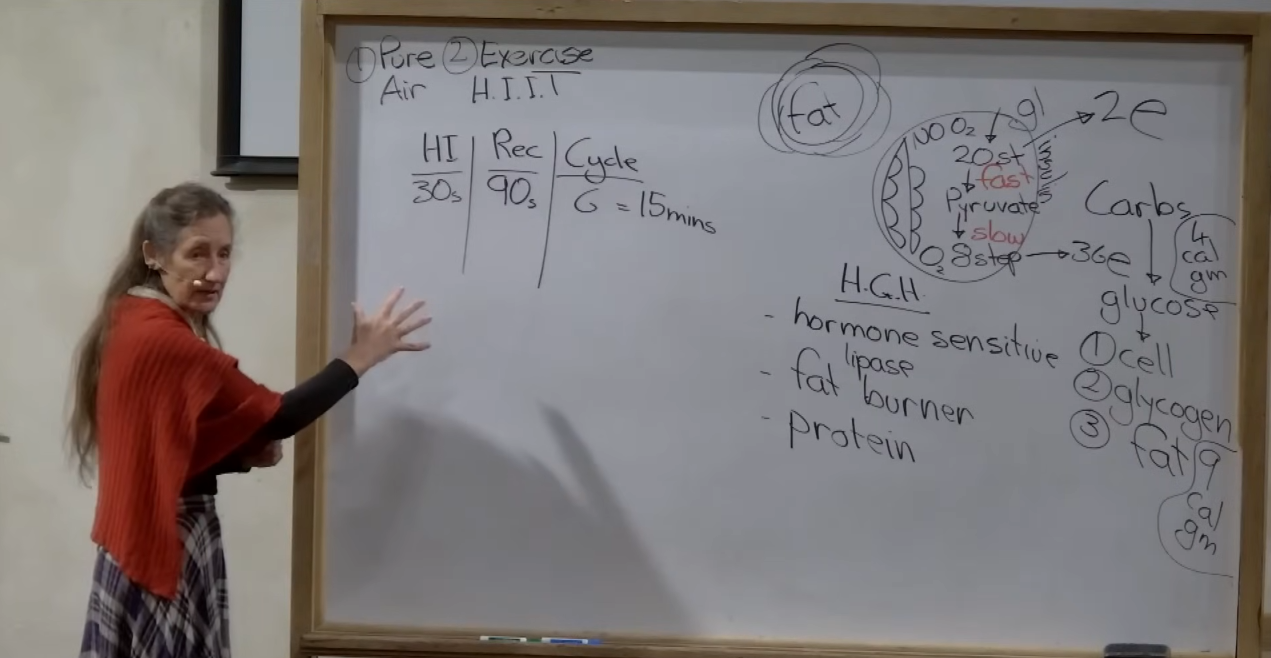 ① Pure ② Exercise
Air H.I.I.T
HI Rec Cycle
30s 90s 6 = 15mins
fat
gl
NO O₂
20st
2e
fast
Pyruvate
slow
O₂ 8step
36e
H.G.H.
- hormone sensitive
lipase
- fat burner
- protein
Carbs
4
cal
gm
glycose
① cell
② glycogen
③ fat
9
cal
gm